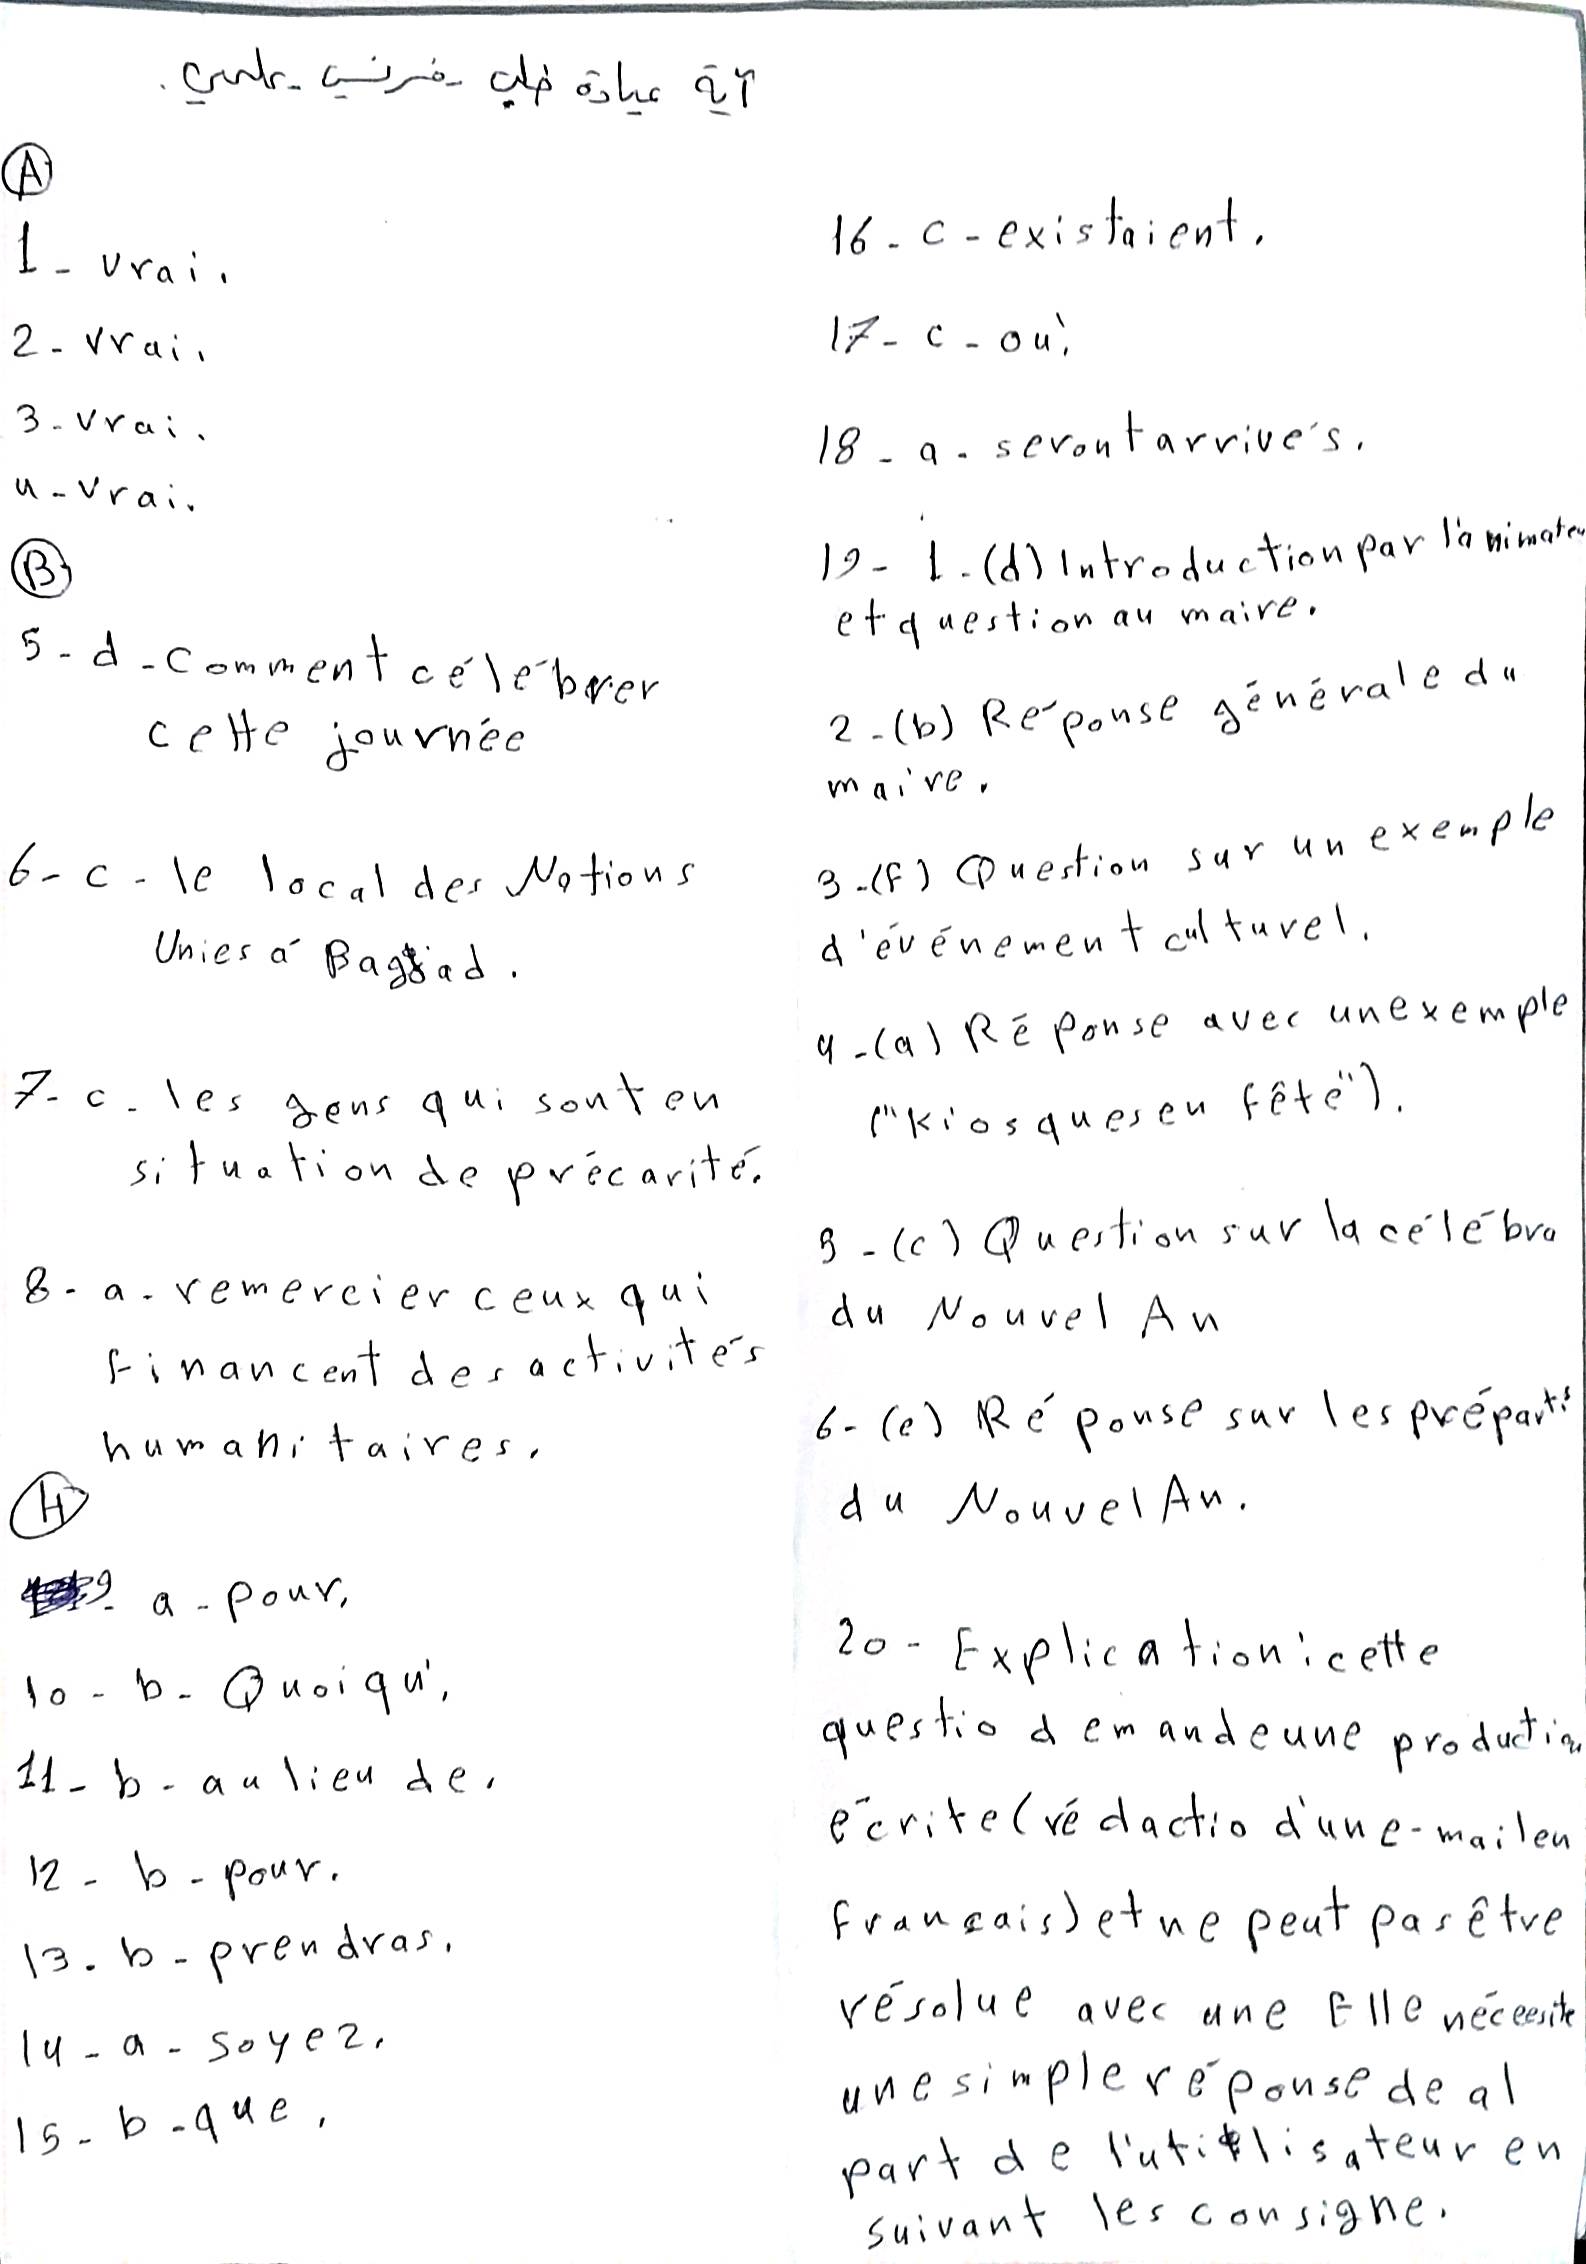 آية عبادة خلف - فرنسي - علمي.
A
1 - vrai.
2 - vrai.
3 - vrai.
4 - vrai.
B
5 - d - Comment célébrer
cette journée
6 - c - le local des Nations
Unies à Bagdad.
7 - c - les gens qui sont en
situation de précarité.
8 - a - remercier ceux qui
financent des activités
humanitaires.
H
9 - a - pour.
10 - b - Quoiqu'.
11 - b - au lieu de.
12 - b - pour.
13 - b - prendras.
14 - a - soyez.
15 - b - que.
16 - c - existaient.
17 - c - où.
18 - a - seront arrivés.
19 - 1 - (d) Introduction par l'animateu
et question au maire.
2 - (b) Réponse générale du
maire.
3 - (f) Question sur un exemple
d'événement culturel.
4 - (a) Réponse avec un exemple
("Kiosques en fête").
5 - (c) Question sur la célébra
du Nouvel An
6 - (e) Réponse sur les préparti
du Nouvel An.
20 - Explication : cette
questio demande une production
écrite (rédactio d'un e-mail en
français) et ne peut pas être
résolue avec une Elle néceesite
une simple réponse de al
part de l'utilisateur en
suivant les consigne.